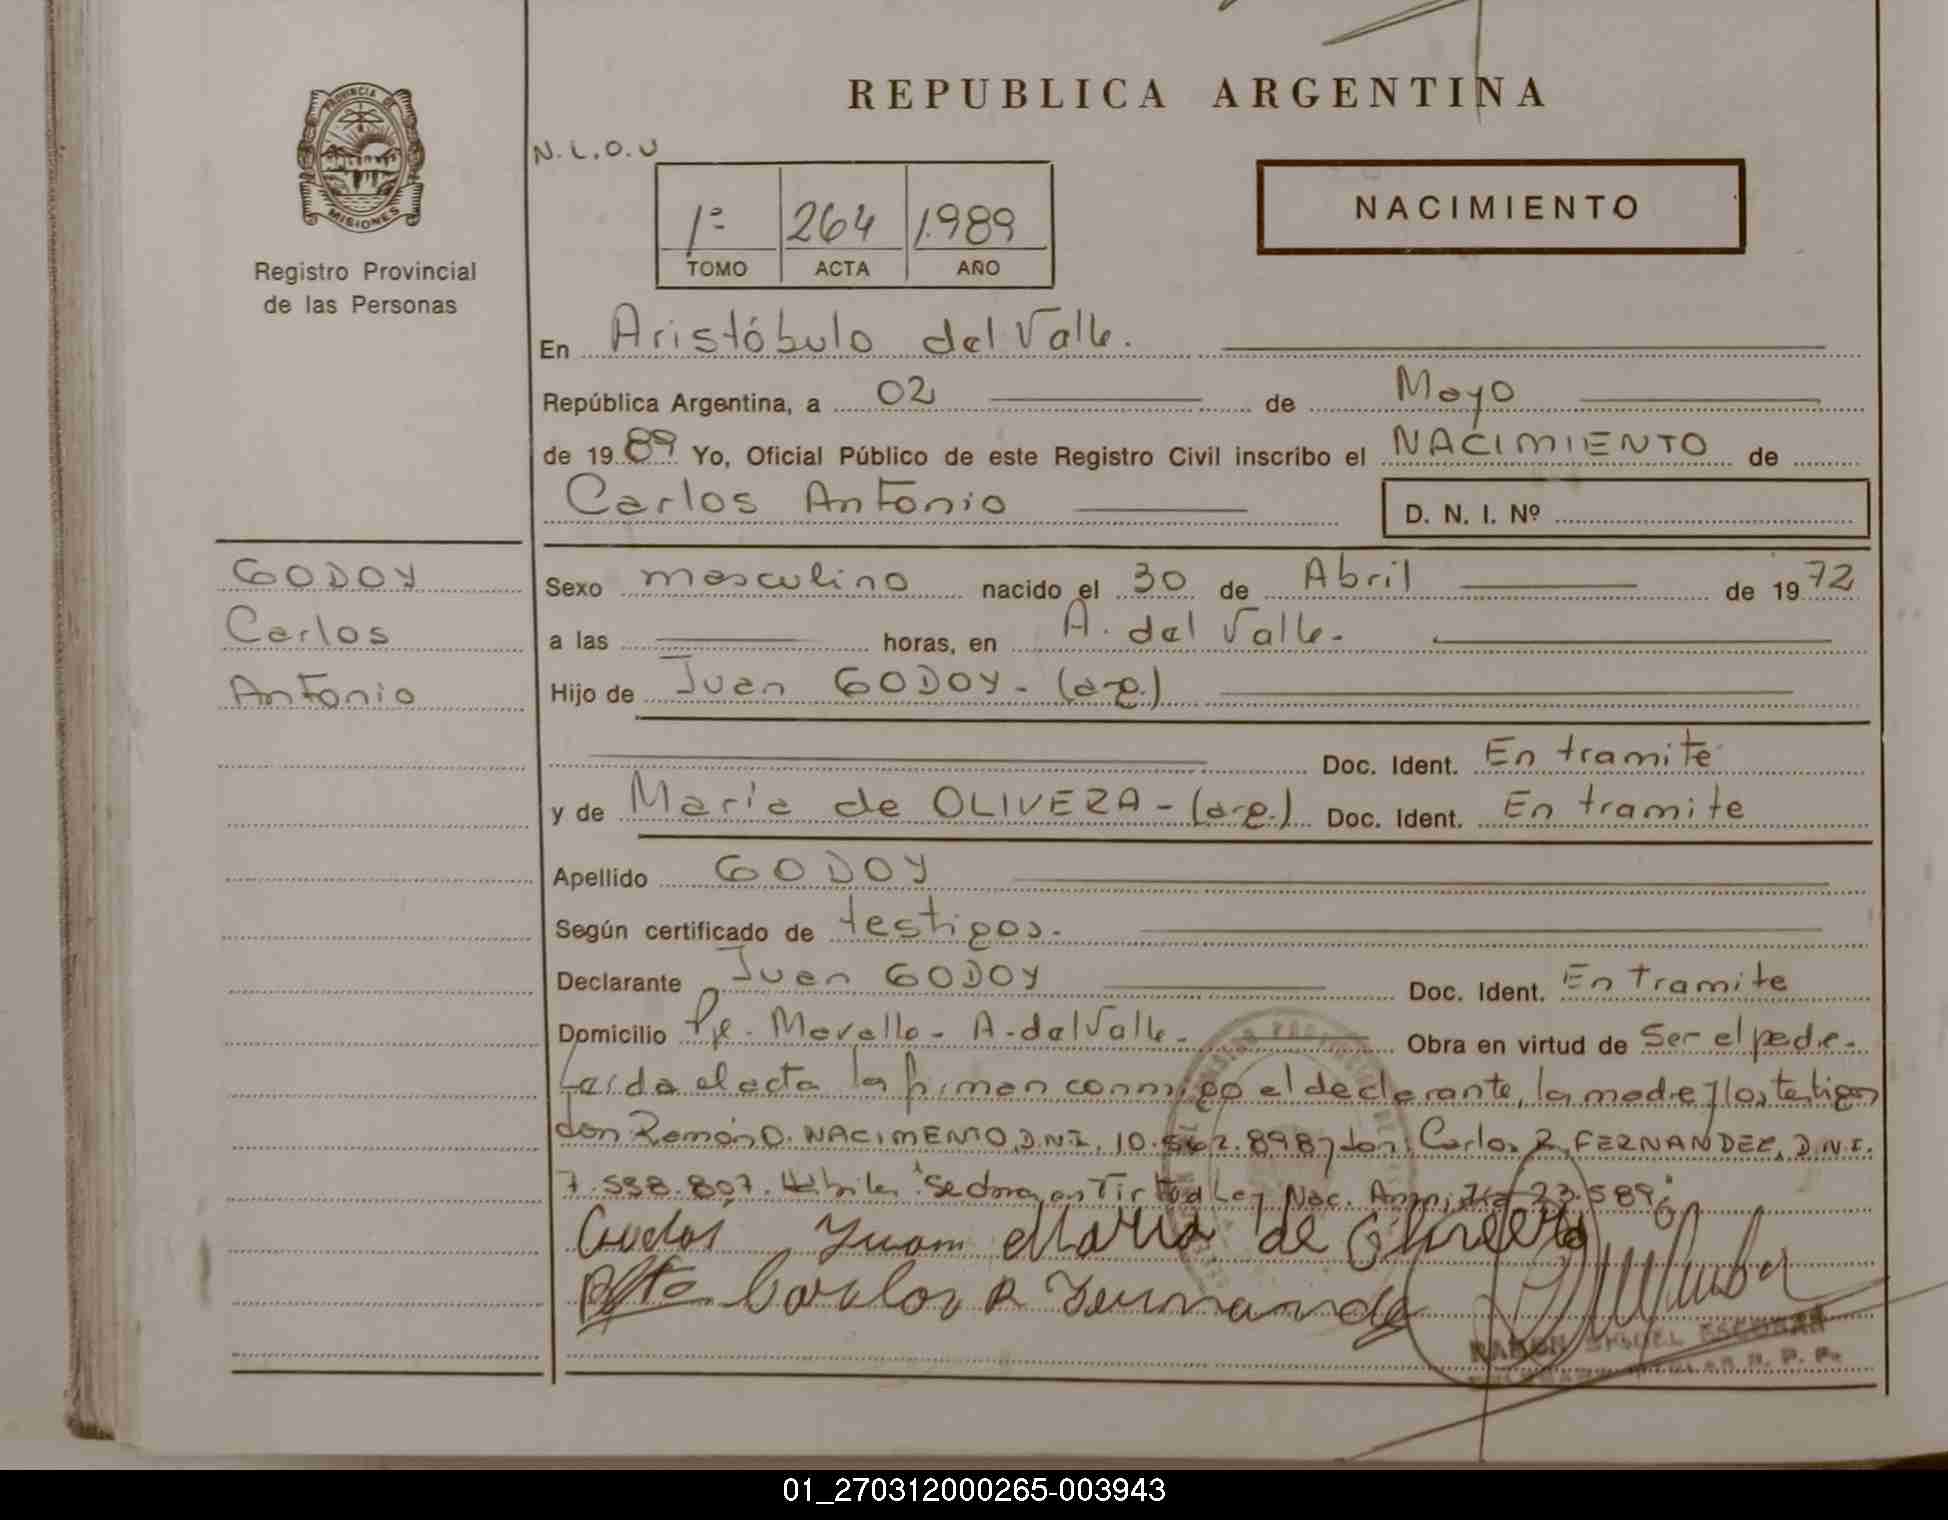 PROVINCIA DE
MISIONES
Registro Provincial
de las Personas
REPUBLICA ARGENTINA
N.L.O.U
1º 264 1.989
TOMO ACTA AÑO
NACIMIENTO
En Aristóbulo del Valle.
República Argentina, a 02 de Mayo
de 1989 Yo, Oficial Público de este Registro Civil inscribo el NACIMIENTO de
Carlos Antonio D. N. I. Nº
GODOY
Carlos
Antonio
Sexo masculino nacido el 30 de Abril de 1972
a las horas, en A. del Valle.
Hijo de Juan GODOY - (arg.)
Doc. Ident. En tramite
y de Maria de OLIVERA - (arg.) Doc. Ident. En tramite
Apellido GODOY
Según certificado de testigos.
Declarante Juan GODOY Doc. Ident. En tramite
Domicilio A. del Valle. Obra en virtud de Ser el padre.
Leida el acta la firman conmigo el declarante, la madre y los testigos
don Ramón O. NACIMENTO, D.N.I. 10.562.898 y don Carlos R. FERNANDEZ, D.N.I.
7.558.807. Ley Nac. Amnistia 23.589
Godoi Juan Maria de Oliveira
Carlos R Fernandez
RAMON MIGUEL ESCOBAR
01_270312000265-003943